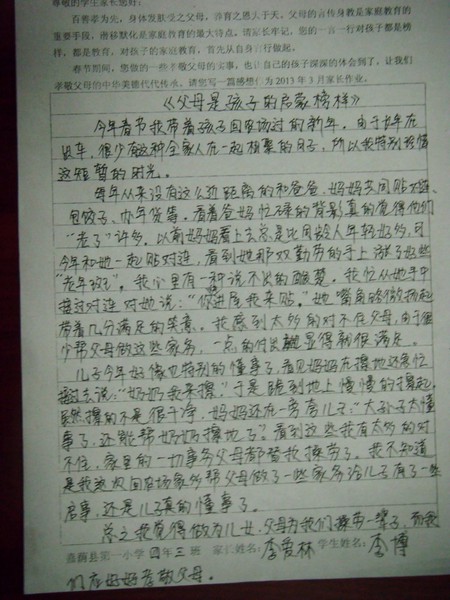 尊敬的学生家长您好：
百善孝为先，身体发肤受之父母，养育之恩大于天，父母的言传身教是家庭教育的
重要手段，潜移默化是家庭教育的最大特点。请家长牢记，您的一言一行对孩子都是榜
样，都是教育，对孩子的家庭教育，首先从自身言行做起。
春节期间，您做的一些孝敬父母的实事，也让自己的孩子深深的体会到了，让我们
孝敬父母的中华美德代代传承。请您写一篇感想作为 2013 年 3 月家长作业。
《父母是孩子的启蒙榜样》
今年春节我带着孩子回农场过的新年，由于长年在
外，很少有这种全家人在一起相聚的日子，所以我特别珍惜
这短暂的时光。
每年从来没有这么近距离的和爸爸、妈妈去同贴对联、
包饺子、办年货等，看着爸妈忙碌的背影真的觉得他们
“老了”许多，以前妈妈看上去总是比同龄人年轻好多，可
今年和她一起贴对联，看到她那双勤劳的手上涨了好些
“老年斑”。我心里有一种说不出的酸楚。我忙从她手中
接过对联对她说：“你进屋我来贴。”她嘴角略微扬起
带着几分满足的笑意。我感到太多的对不住父母，由于很
少帮父母做这些家务，一点的付出就显得都很满足。
儿子今年好像也特别的懂事了，看见奶奶在擦地还急忙
过去说：“奶奶我来擦”于是跪到地上慢慢的擦起，
虽然擦的不是很干净，妈妈还在一旁夸儿子：“大孙子太懂
事了，还能帮奶奶擦地了”。看到这些我有太多的对
不住，家里的一切事务父母都替我操劳了。我不知道
是我这次回农场家多帮父母做了一些家务给儿子有了一些
启事，还是儿子真的懂事了。
总之我觉得做为儿女，父母为我们操劳一辈子，而我
嘉荫县第一小学 四 年 三 班 家长姓名：李爱林 学生姓名：李博
们应好好孝敬父母。